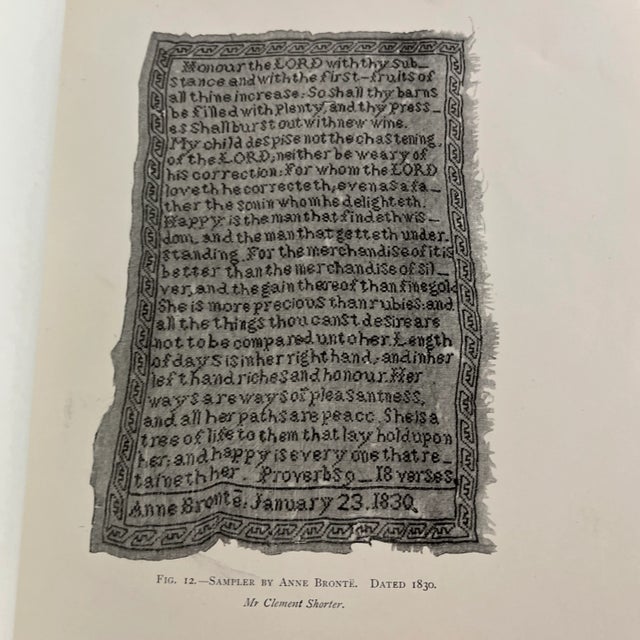 Honour the LORD with thy sub_
stance and with the first-fruits of
all thine increase: So shall thy barns
be filled with plenty, and thy press_
es shall burst out with new wine.
My child despise not the chastening
of the LORD; neither be weary of
his correction: For whom the LORD
loveth he correcteth, even as a fa_
ther the son in whom he delighteth.
Happy is the man that findeth wis_
dom, and the man that getteth under_
standing. For the merchandise of it is
better than the merchandise of sil_
ver, and the gain thereof than fine gold
She is more precious than rubies: and
all the things thou canst desire are
not to be compared unto her. Length
of days is in her right hand; and in her
left hand riches and honour. Her
ways are ways of pleasantness,
and all her paths are peace. She is a
tree of life to them that lay hold upon
her: and happy is every one that re_
taineth her. Proverbs _ 18 verses
Anne Brontë. January 23, 1830.
FIG. 12.—SAMPLER BY ANNE BRONTË. DATED 1830.
Mr Clement Shorter.